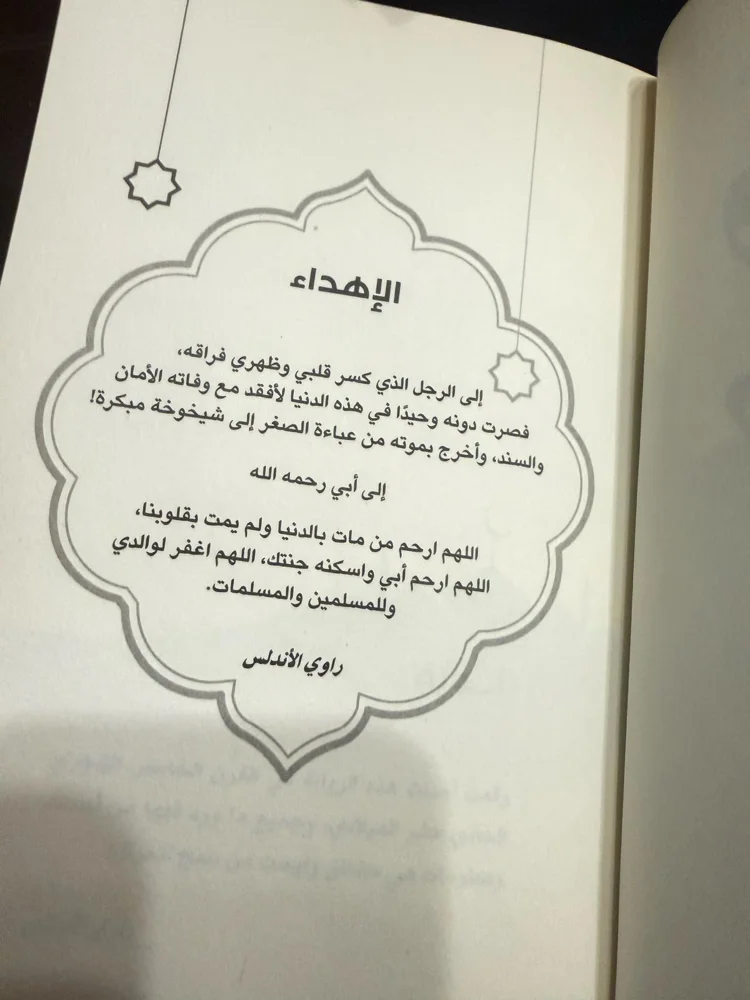 الإهداء
إلى الرجل الذي كسر قلبي وظهري فراقه،
فصرت دونه وحيدًا في هذه الدنيا لأفقد مع وفاته الأمان
والسند، وأخرج بموته من عباءة الصغر إلى شيخوخة مبكرة!
إلى أبي رحمه الله
اللهم ارحم من مات بالدنيا ولم يمت بقلوبنا،
اللهم ارحم أبي واسكنه جنتك، اللهم اغفر لوالدي
وللمسلمين والمسلمات.
راوي الأندلس